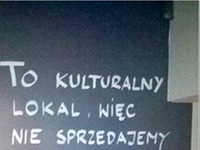 TO KULTURALNY
LOKAL, WIĘC
NIE SPRZEDAJEMY